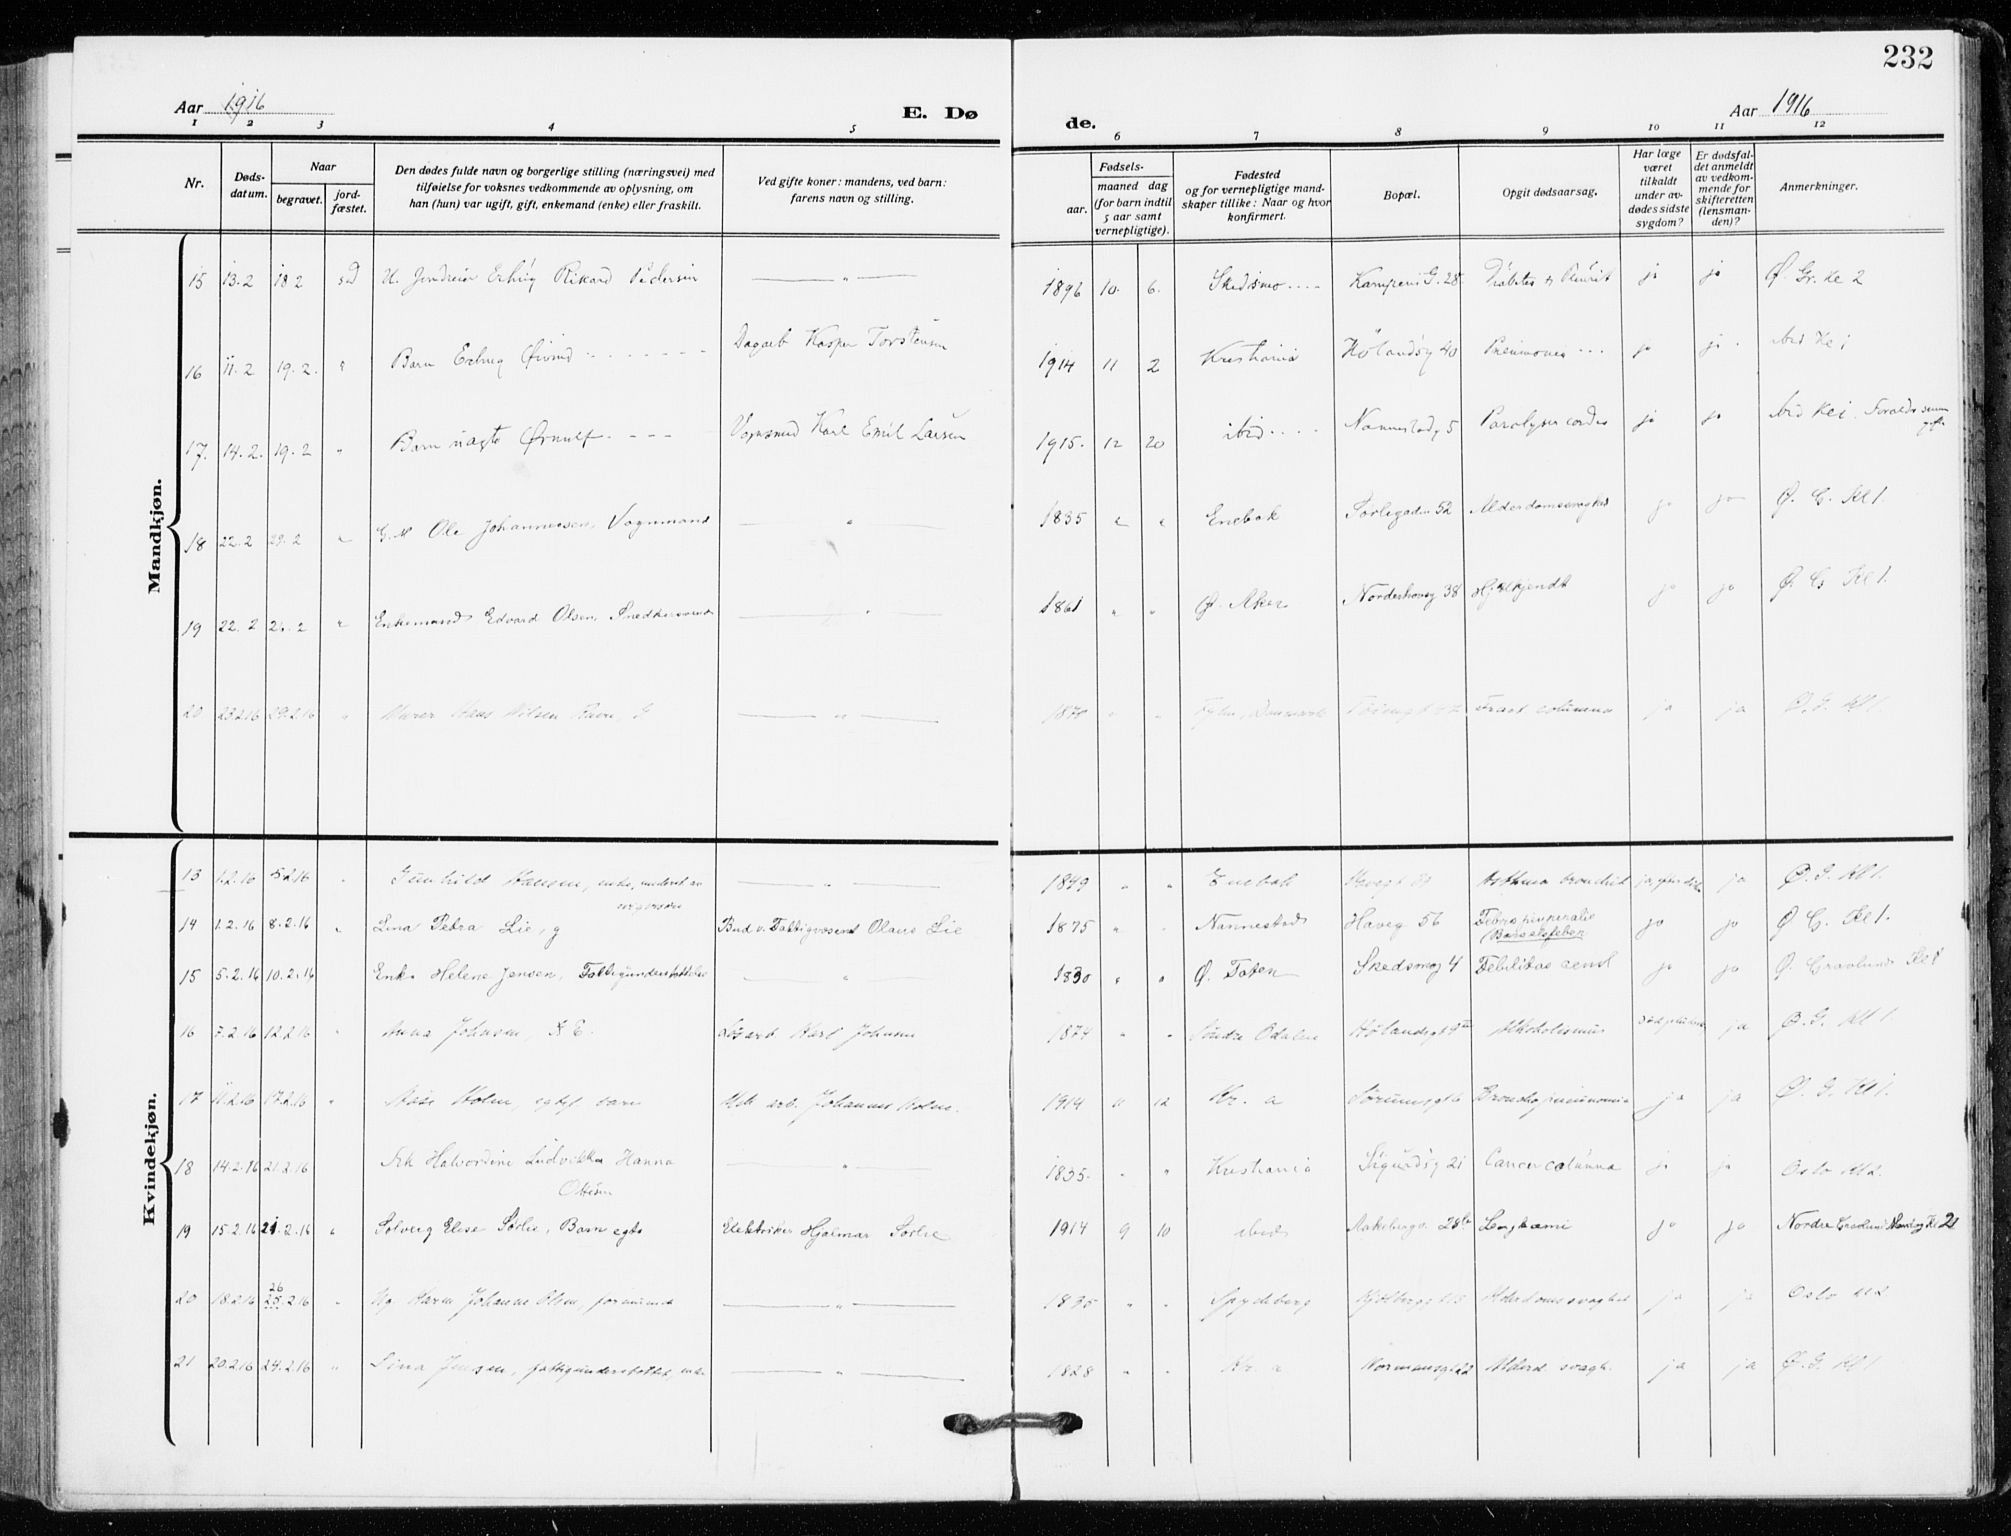 232
Aar 1916
E. Døde.
Aar 1916
1 2 3 4 5 6 7 8 9 10 11 12
Nr.
Døds-datum.
Naar
begravet.
jord-fæstet.
Den dødes fulde navn og borgerlige stilling (næringsvei) med
tilføielse for voksnes vedkommende av oplysning, om
han (hun) var ugift, gift, enkemand (enke) eller fraskilt.
Ved gifte koner: mandens, ved barn:
farens navn og stilling.
Fødsels-
aar.
maaned dag
(for barn indtil
5 aar samt
vernepligtige).
Fødested
og for vernepligtige mand-
skaper tillike: Naar og hvor
konfirmert.
Bopæl.
Opgit dødsaarsag.
Har læge
været
tilkaldt
under av-
dødes sidste
sygdom?
Er dødsfal-
det anmeldt
av vedkom-
mende for
skifteretten
(lensman-
den)?
Anmerkninger.
Mandkjøn.
15 13.2 18 2 sD Erling Rikard Pedersen — " — 1896 10. 6. Skedsmo Kampens G. 28. Diabetes & Pleurit ja ja Ø. Gr. Kl 2
16 11.2 19.2. " Barn Erling Øivind Dagarb Kasper Torstensen 1914 11 2 Kristiania Hølandsg 40 Pneumonia ja ja ibid Kl 1
17. 14.2. 19.2 " Barn uægte Ørnulf Vognmand Karl Emil Larsen 1915. 12 20 ibid Nannestadg 5 Paralysis cordis ja ja ibid Kl 1. Foreldr senere gift
18 22.2 29.2 " G.M Ole Johannessen, Vognmand — " — 1835 " " Enebak Sørligaden 52 Alderdomssvaghed ja ja Ø. G. Kl 1.
19 22.2 26.2 " Enkemand Edvard Olsen, Snedkersvend — " — 1861 " " Ø. Aker Norderhovsg 38 ja ja Ø. G. Kl 1.
20 23.2.16 29.2.16 " Murer Hans Nilsen Ravn, G — " — 1870 " " Fyen, Danmark Fract columna ja ja Ø. G. Kl 1.
Kvindekjøn.
13 1.2.16 5.2.16 " Gunhild Hansen, enke, underst. av — " — 1849 " " Enebak Asthma bronchit ja ja Ø. G. Kl 1.
14 1.2.16 8.2.16 " Lina Petra Lie, g Bud v. Fattigvæsenet Olaus Lie 1875 " " Nannestad Haveg 56 Febris puerperalis (Barselsfeber ja ja Ø G. Kl 1.
15 5.2.16 10.2.16 Enke Helene Jensen, Fattigunderstøttelse — " — 1830 " " Ø. Toten Skedsmog 4 Debilitas senil ja ja Ø. Gravlund Kl 1
16 7.2.16 12.2.16 " Anna Johnsen, Løsarb Karl Johnsen 1874 " " Søndre Odalen Hølandsgt Alkoholismus ja Ø. G. Kl 1.
17 11.2.16 17.2.16 " Aase Holm, egtef barn arb. Johannes Holm. 1914 11 12 Kr. a Sørumsgt 6 Broncho pneumonia ja ja Ø. G. Kl 1.
18 14.2.16 21.2.16 Frk Halvordine Ludvikka Hanna Ottesen — " — 1835. " " Kristiania Sigurdsg 21 Cancer ja ja Oslo Kl 2.
19 15.2.16 21.2.16 " Solveig Elise Sørlie, Barn egte Elektriker Hjalmar Sørlie 1914 9 10 ibid Aakebergv. 28b ja ja Nordre Gravlund Kl 2
20 18.2.16 26 25.2.16 " Ug. Karen Johanne Olsen, — " — 1835 " " Spydeberg Alderdomssvaghed ja ja Oslo Kl 2
21 20.2.16 24.2.16 " Lina Jensen, fattigunderstøttet, enke — " — 1828 " " Kr. a Normannsgt 22 Alderd. svagh. ja ja Ø. G. Kl 1